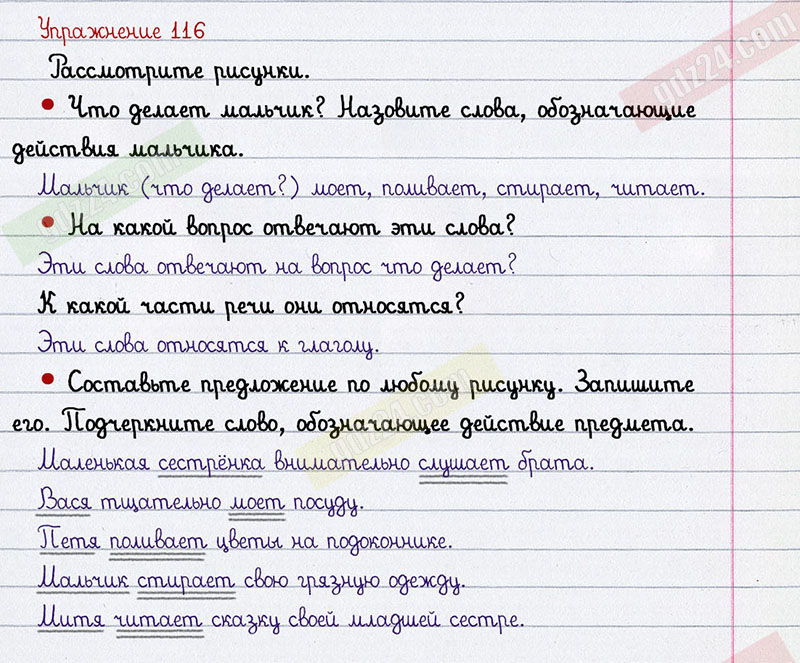 Упражнение 116
Рассмотрите рисунки.
• Что делает мальчик? Назовите слова, обозначающие
действия мальчика.
Мальчик (что делает?) моет, поливает, стирает, читает.
• На какой вопрос отвечают эти слова?
Эти слова отвечают на вопрос что делает?
К какой части речи они относятся?
Эти слова относятся к глаголу.
• Составьте предложение по любому рисунку. Запишите
его. Подчеркните слово, обозначающее действие предмета.
Маленькая сестрёнка внимательно слушает брата.
Вася тщательно моет посуду.
Петя поливает цветы на подоконнике.
Мальчик стирает свою грязную одежду.
Митя читает сказку своей младшей сестре.
gdz24.com
gdz24.com
gdz24.com